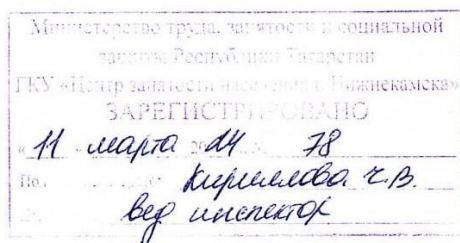 Министерство труда, занятости и социальной
защиты Республики Татарстан
ГКУ «Центр занятости населения г. Нижнекамска»
ЗАРЕГИСТРИРОВАНО
« 11 » марта 2014 78
Кириллова Ч.В.
вед инспектор